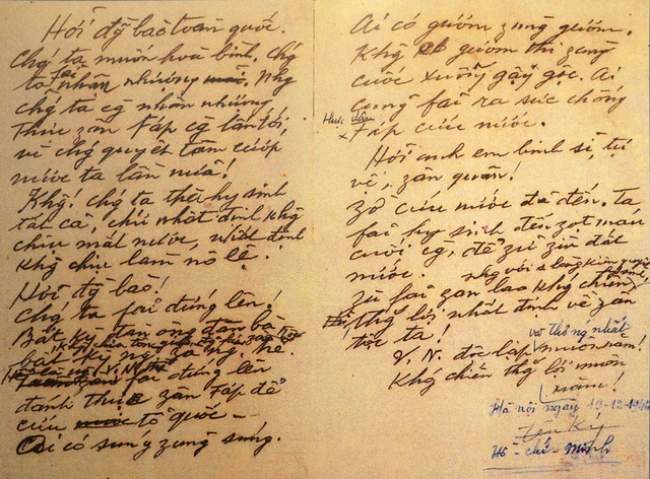 Hỡi đg̃ bào toàn quốc.
Chǵ ta muốn hoà bình, chǵ
ta fải nhân nhượng. Nhg
chǵ ta cg̀ nhân nhượng
thực zân Fáp cg̀ lấn tới,
vì chǵ quyết tâm cướp
nước ta lần nữa!
Khg! chǵ ta thà hy sinh
tất cả, chứ nhất định khg
chịu mất nước, nhất định
khg chịu làm nô lệ.
Hỡi đg̀ bào!
Chǵ ta fải đứng lên!
Bất kỳ đàn ông đàn bà
bất kỳ ng̀ già ng̀ trẻ.
fải đứng lên
đánh thực zân Fáp để
cứu tổ quốc –
Ai có súng zùng súng.
Ai có gươm zùng gươm.
Khg có gươm thì zùng
cuốc xuổng gậy gộc. Ai
cũng fải ra sức chống
thực dân
x Fáp cứu nước.
Hỡi anh em binh sĩ, tự
vệ, zân quân!
Zờ cứu nước đã đến. Ta
fải hy sinh đến zọt máu
cuối cg̀, để zữ zìn đất
nước.
Zù fải zan lao khg chiến
nhg với 1 lòng kiên quyết
hy sinh,
Thg̀ lợi nhất định về zân
tộc ta!
V.N. độc lập và thống nhất muôn năm!
Khg chiến thg̀ lợi muôn
năm!
Hà nội ngày 19-12-1946
Hồ-chí-Minh